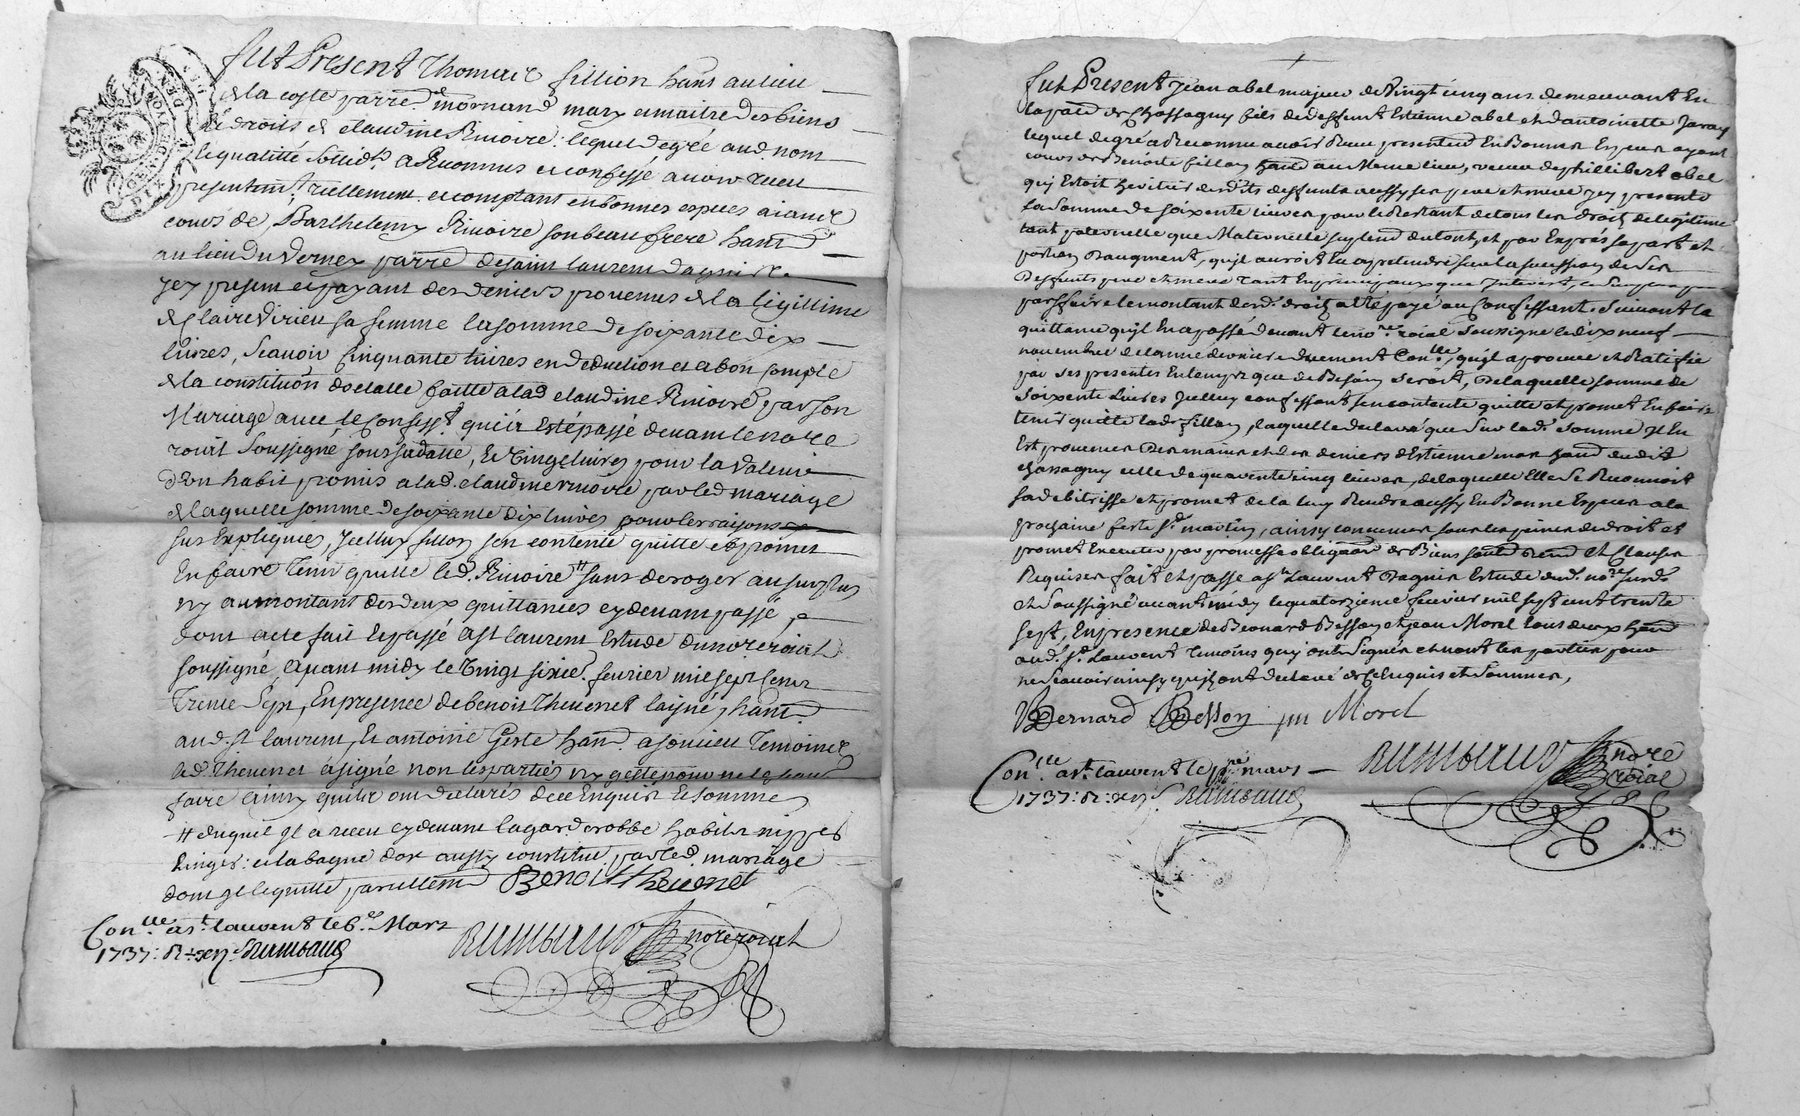 fut Present Thomas fillion hant au lieu
de la coste parre. de mornand mary et maitre des biens
et droits de claudine Rivoire: lequel de gré aud. nom
et qualitté sollid. a Reconnus et confessé avoir reçeu
presentemt. reellement et comptant en bonnes espeçes aiant
cours de Barthelemy Rivoire son beau frere hant
au lieu du Verney parre. de saint laurent dagni
jcy present et payant des deniers provenus de la legittime
de Claire Virieu sa femme la somme de soixante dix
livres, Scavoir Cinquante livres en deduction et a bon compte
de la constitution dotalle faitte a lad. claudine Rivoire par son
Mariage avec le Confesst. qui a Esté passé devant le nore
roial soussigné sous sa datte, Et vingt livres pour la valeur
d'un habit promis a lad. claudine rivoire par led. mariage
de laquelle somme de soixante dix livres pour les raisons
sus Expliquées, jcelluy fillion sen contente quitte et promet
En faire tenir quitte led. Rivoire # sans deroger au surplus
ny au montant des deux quittances cy devant passé
dont acte fait Et passé a st laurent Estude du nore roial
soussigné, avant midy le vingt sixie. fevrier mil sept cent
Trente sept, En presence de benoit Thevenet laisné, hant.
aud. st laurent, Et antoine Geste hant. a soucieu Temoins
led. Thevenet a signé non les parties ny Geste pour ne le scavoir
faire ainsy quils ont declarés de ce Enquis Et sommés
# duquel jl a receu cy devant la garderobbe habits nippes
Linges: et la bague d'or aussy constitué par led. mariage
dont jl le quitte pareillemt Benoit thevenet
Con.lle a st. laurent le 6e. Mars
1737: R: Rambaud
Rambaud nore roial
fut Present Jean abel majeur de Vingt cinq ans demeurant En
la parre de Chassagny fils de deffunt Estienne abel et d'antoinette Jaray
lequel de gré a Reconnu avoir Reçu presentemt En Bonnes Especes ayant
cours de Benoite fillon hante au Meme lieu, veuve de phillibert abel
quj Estoit heritier desdits deffunts aussy ses pere et mere jcy presente
la Somme de soixente livres pour le Restant de tous les droits de legitime
tant paternelle que Maternelle suplemt dicelle, et par Exprés sa part et
portion D'augment, qu'jl auroit Eu a pretendre sur la succession de ses
Deffunts pere et mere tant En principaux que Interest,
parfaire le montant desd. droits a Eté payé au Confessant. Suivant la
quittance qu'jl En a passé devant le nore. roial Soussigné le dix neuf
novembre de lannée derniere duement Con.lle, qu'jl aprouve et Ratifie
par ses presentes En temps que de Besoin seroit, De laquelle somme de
Soixente Livres Jcelluy confessant sen contente quitte et promet En faire
tenir quitte lad. fillon, laquelle declare que Sur lad. Somme Jl En
Est provenu Des mains et des deniers d'Estienne hant dudit
chassagny celle de quarente cinq livres, de laquelle Elle Se Reconnoit
sa debitrisse et promet de la luy Rendre aussy En Bonne Especes a la
prochaine feste st. martin, ainsy convenus sous les peines de droit et
promet Executer par promesse obligaon. de Biens soumd. Rend. et Clauses
Requises fait et passé a st. Laurent Dagnin Estude dud. nore. susd.
et Soussigné avant midy le quatorzieme fevrier mil sept cent trente
sept, En presence de Bernard Besson et jean Morel tous deux hant
aud. st. Laurent Temoins quy ont Signés et nont les parties pour
ne Scavoir ainsy qu'jls ont declaré de Ce Enquis et Sommés,
Bernard Besson jn Morel
Con.lle a st. laurent le mars
1737: R: Rambaud
Rambaud nore
roial